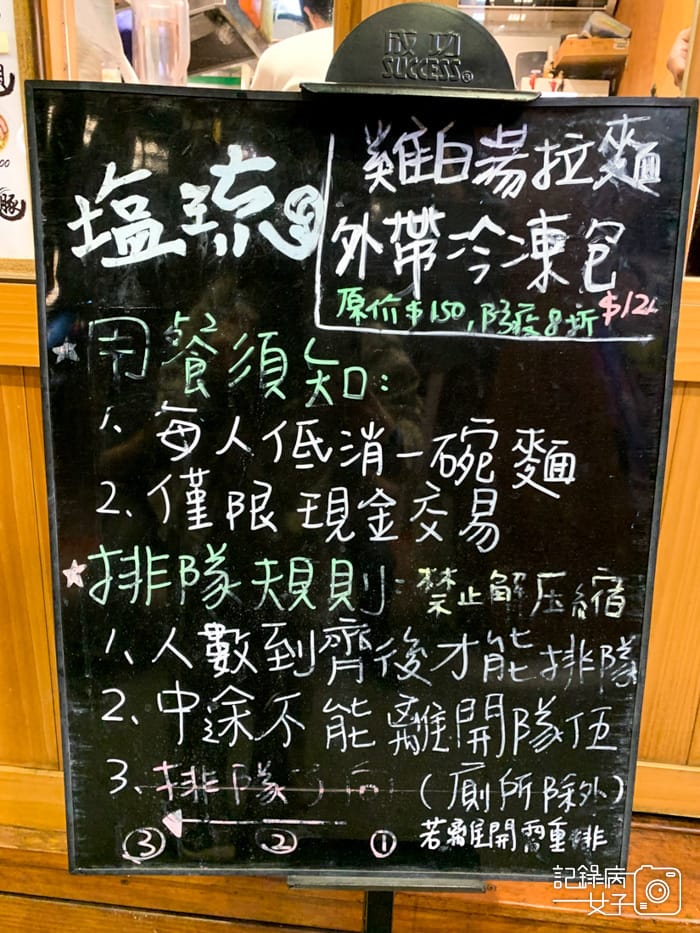 成功
SUCCESS®
塩琉
雞白湯拉麵
外帶冷凍包
原价$150,防疫8折 $12
用餐須知:
1、每人低消一碗麵
2、僅限現金交易
排隊規則:禁止解压縮
1、人數到齊後才能排隊
2、中途不能離開隊伍
(廁所除外)
若離開需重排
3、排隊方向
③ ② ①
記錄病
女子
豚